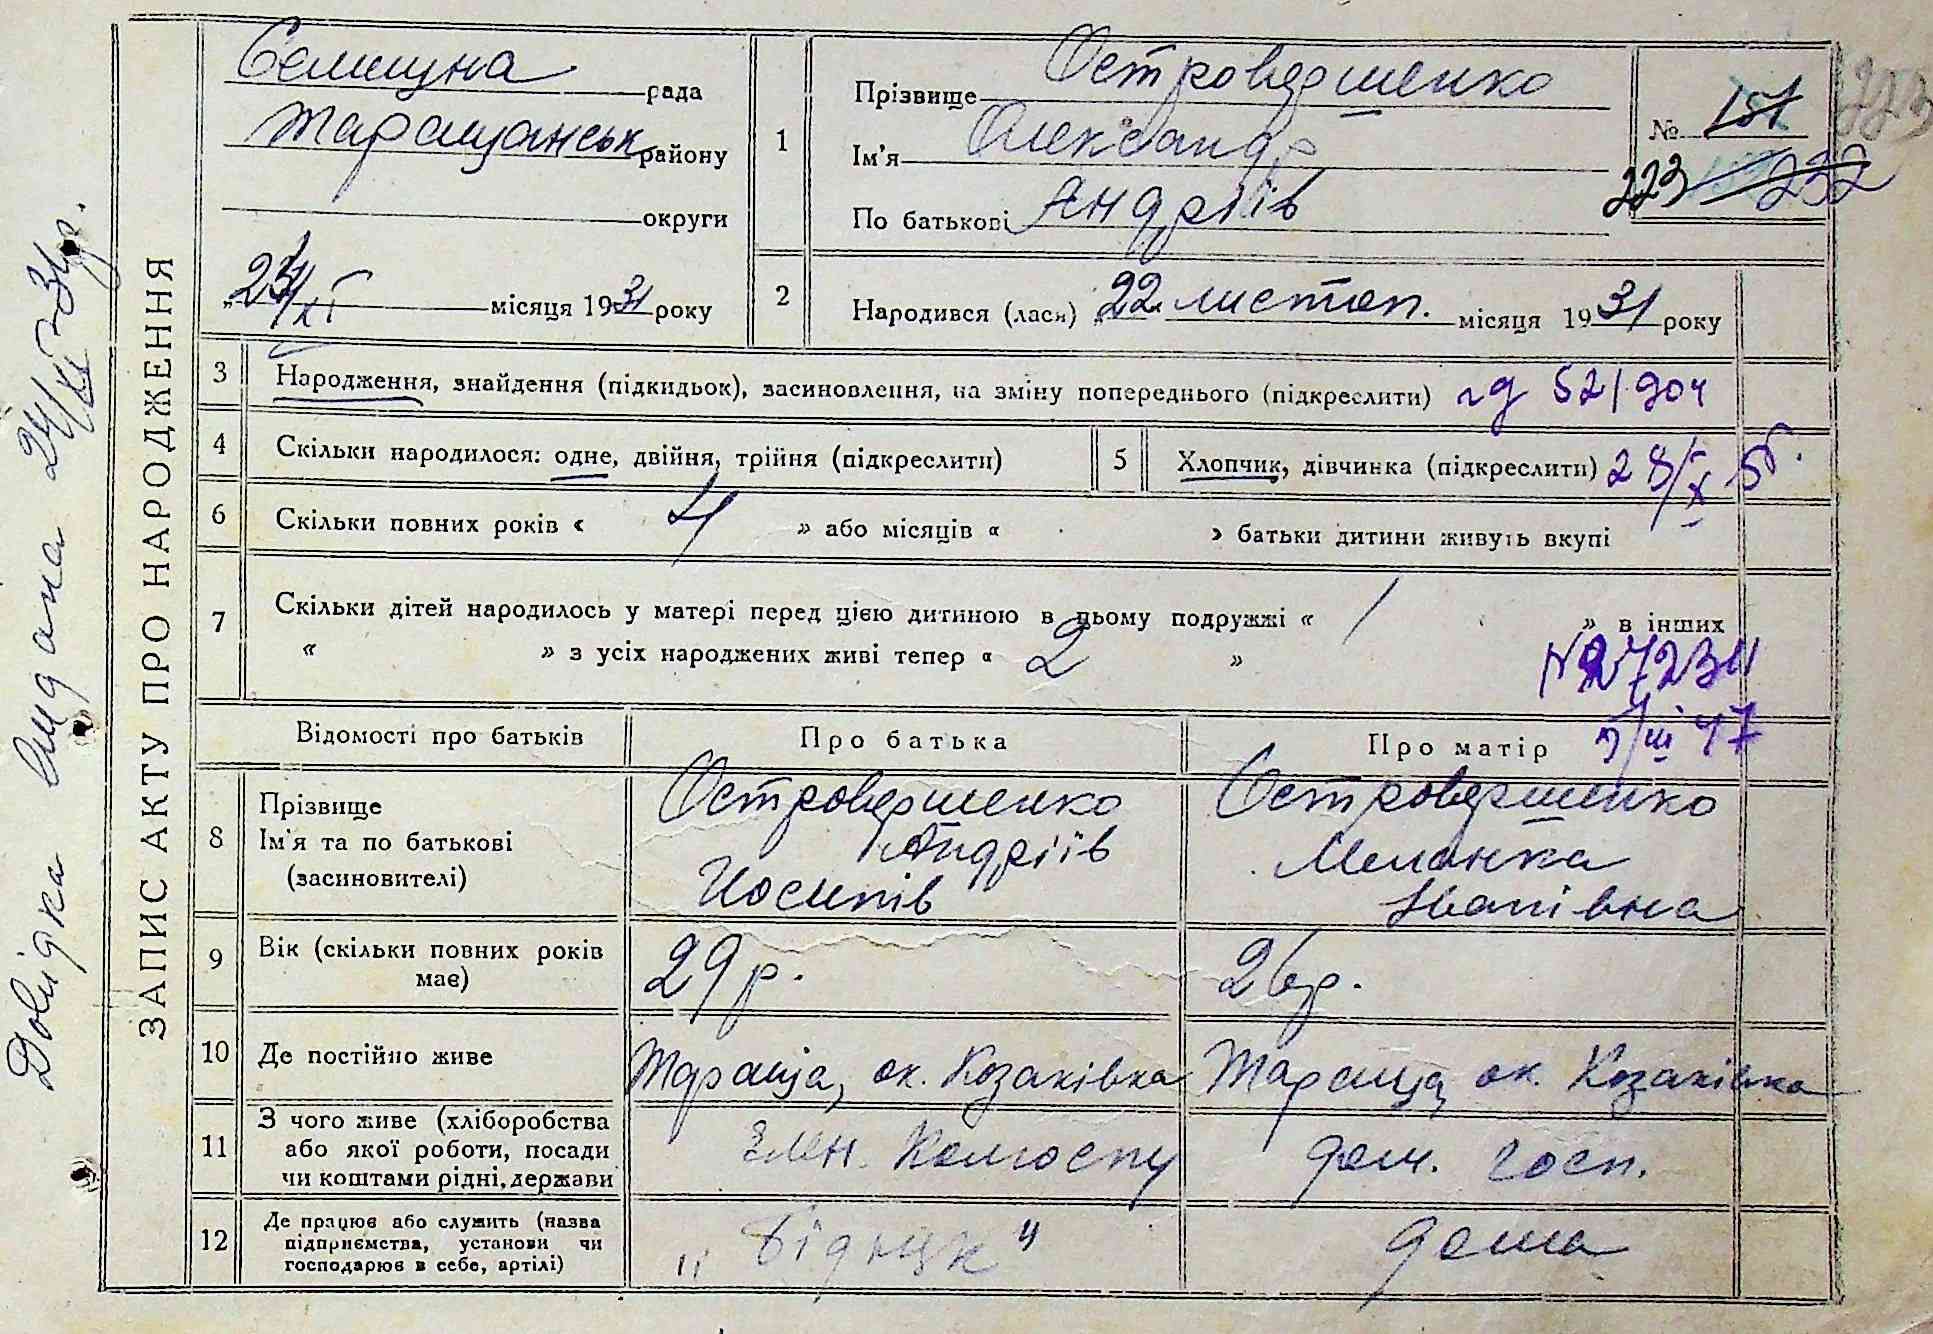 Довідка видана 24/XI-31р.
ЗАПИС АКТУ ПРО НАРОДЖЕННЯ
Селищна рада
Таращанськ району
округи
„ 24/XI місяця 1931 року
1
Прізвище Островершенко
Ім'я Олександр
По батькові Андріїв
№ 151
223 232
223
2
Народився (лася) „22“ листоп. місяця 1931 року
3
Народження, знайдення (підкидьок), засиновлення, на зміну попереднього (підкреслити)
4
Скільки народилося: одне, двійня, трійня (підкреслити)
5
Хлопчик, дівчинка (підкреслити)
6
Скільки повних років « 4 » або місяців « » батьки дитини живуть вкупі
7
Скільки дітей народилось у матері перед цією дитиною в цьому подружжі « 1 » в інших
« » з усіх народжених живі тепер « 2 »
Відомості про батьків
Про батька
Про матір
8
Прізвище
Ім'я та по батькові
(засиновителі)
Островершенко
Андріїв
Йосипів
Островершенко
Меланка
Іванівна
9
Вік (скільки повних років
має)
29 р.
26 р.
10
Де постійно живе
Тараща, ок. Козаківка
Тараща, ок. Козаківка
11
З чого живе (хліборобства
або якої роботи, посади
чи коштами рідні, держави
Член. Колгоспу
дом. госп.
12
Де працює або служить (назва
підприємства, установи чи
господарює в себе, артілі)
„ Бідняк “
дома